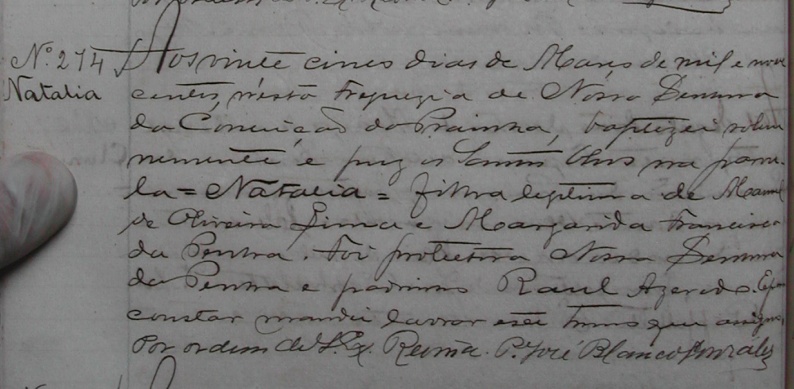 Nº 274 Aos vinte cinco dias de Março de mil e nove
Natalia centos, nesta freguezia de Nossa Senhora
da Conceição da Prainha, baptizei solem
nemente e puz os Santos Oleos na parvu-
la = Natalia = filha legitima de Manoel
de Oliveira Lima e Margarida Francisca
da Penha. Foi protectora Nossa Senhora
da Penha e padrinho Raul Azevedo. E para
constar mandei lavrar este termo que assigno.
Por ordem de S. Ex. Revmª. P. José Blanco Gonzalez